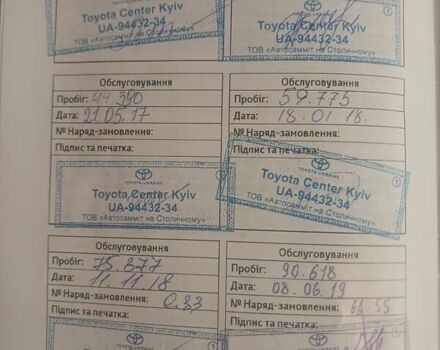 Toyota Center Kyiv
UA-94432-34
ТОВ «Автосамміт на Столичному»
TOYOTA UKRAINE
Toyota Center Kyiv
UA-94432-34
ТОВ «Автосамміт на Столичному»
Обслуговування
Пробіг: 44 390
Дата: 21.05.17
№ Наряд-замовлення:
Підпис та печатка:
TOYOTA UKRAINE
Toyota Center Kyiv
UA-94432-34
ТОВ «Автосамміт на Столичному»
Обслуговування
Пробіг: 59.775
Дата: 18.01.18.
№ Наряд-замовлення:
Підпис та печатка:
TOYOTA UKRAINE
Toyota Center Kyiv
UA-94432-34
ТОВ «Автосамміт на Столичному»
Обслуговування
Пробіг: 75.877
Дата: 11.11.18
№ Наряд-замовлення: 0.33
Підпис та печатка:
TOYOTA UKRAINE
Обслуговування
Пробіг: 90.618
Дата: 08.06.19
№ Наряд-замовлення: 66 55
Підпис та печатка: